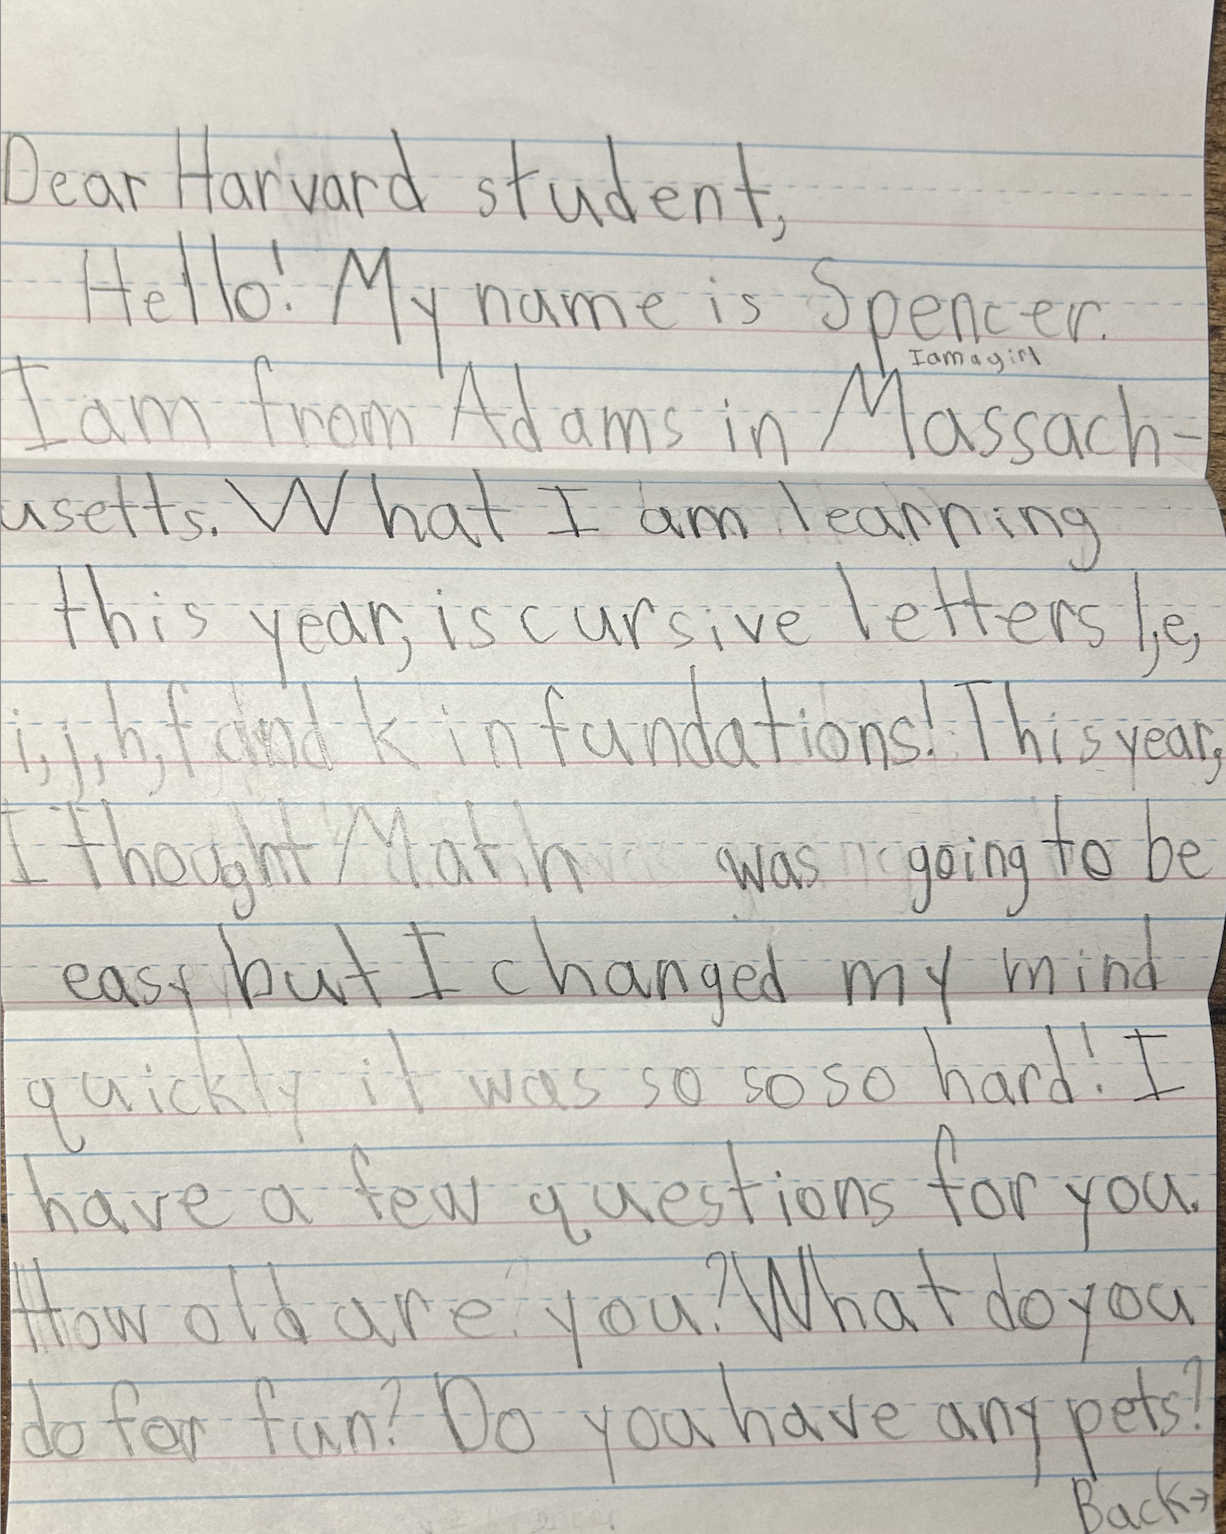 Dear Harvard student,
Hello! My name is Spencer.
I am a girl
I am from Adams in Massach-
usetts. What I am learning
this year, is cursive letters l,e,
i,j,h,f and k in fundations! This year,
I thought Math was going to be
easy but I changed my mind
quickly it was so so so hard! I
have a few questions for you.
How old are you? What do you
do for fun? Do you have any pets?
Back→